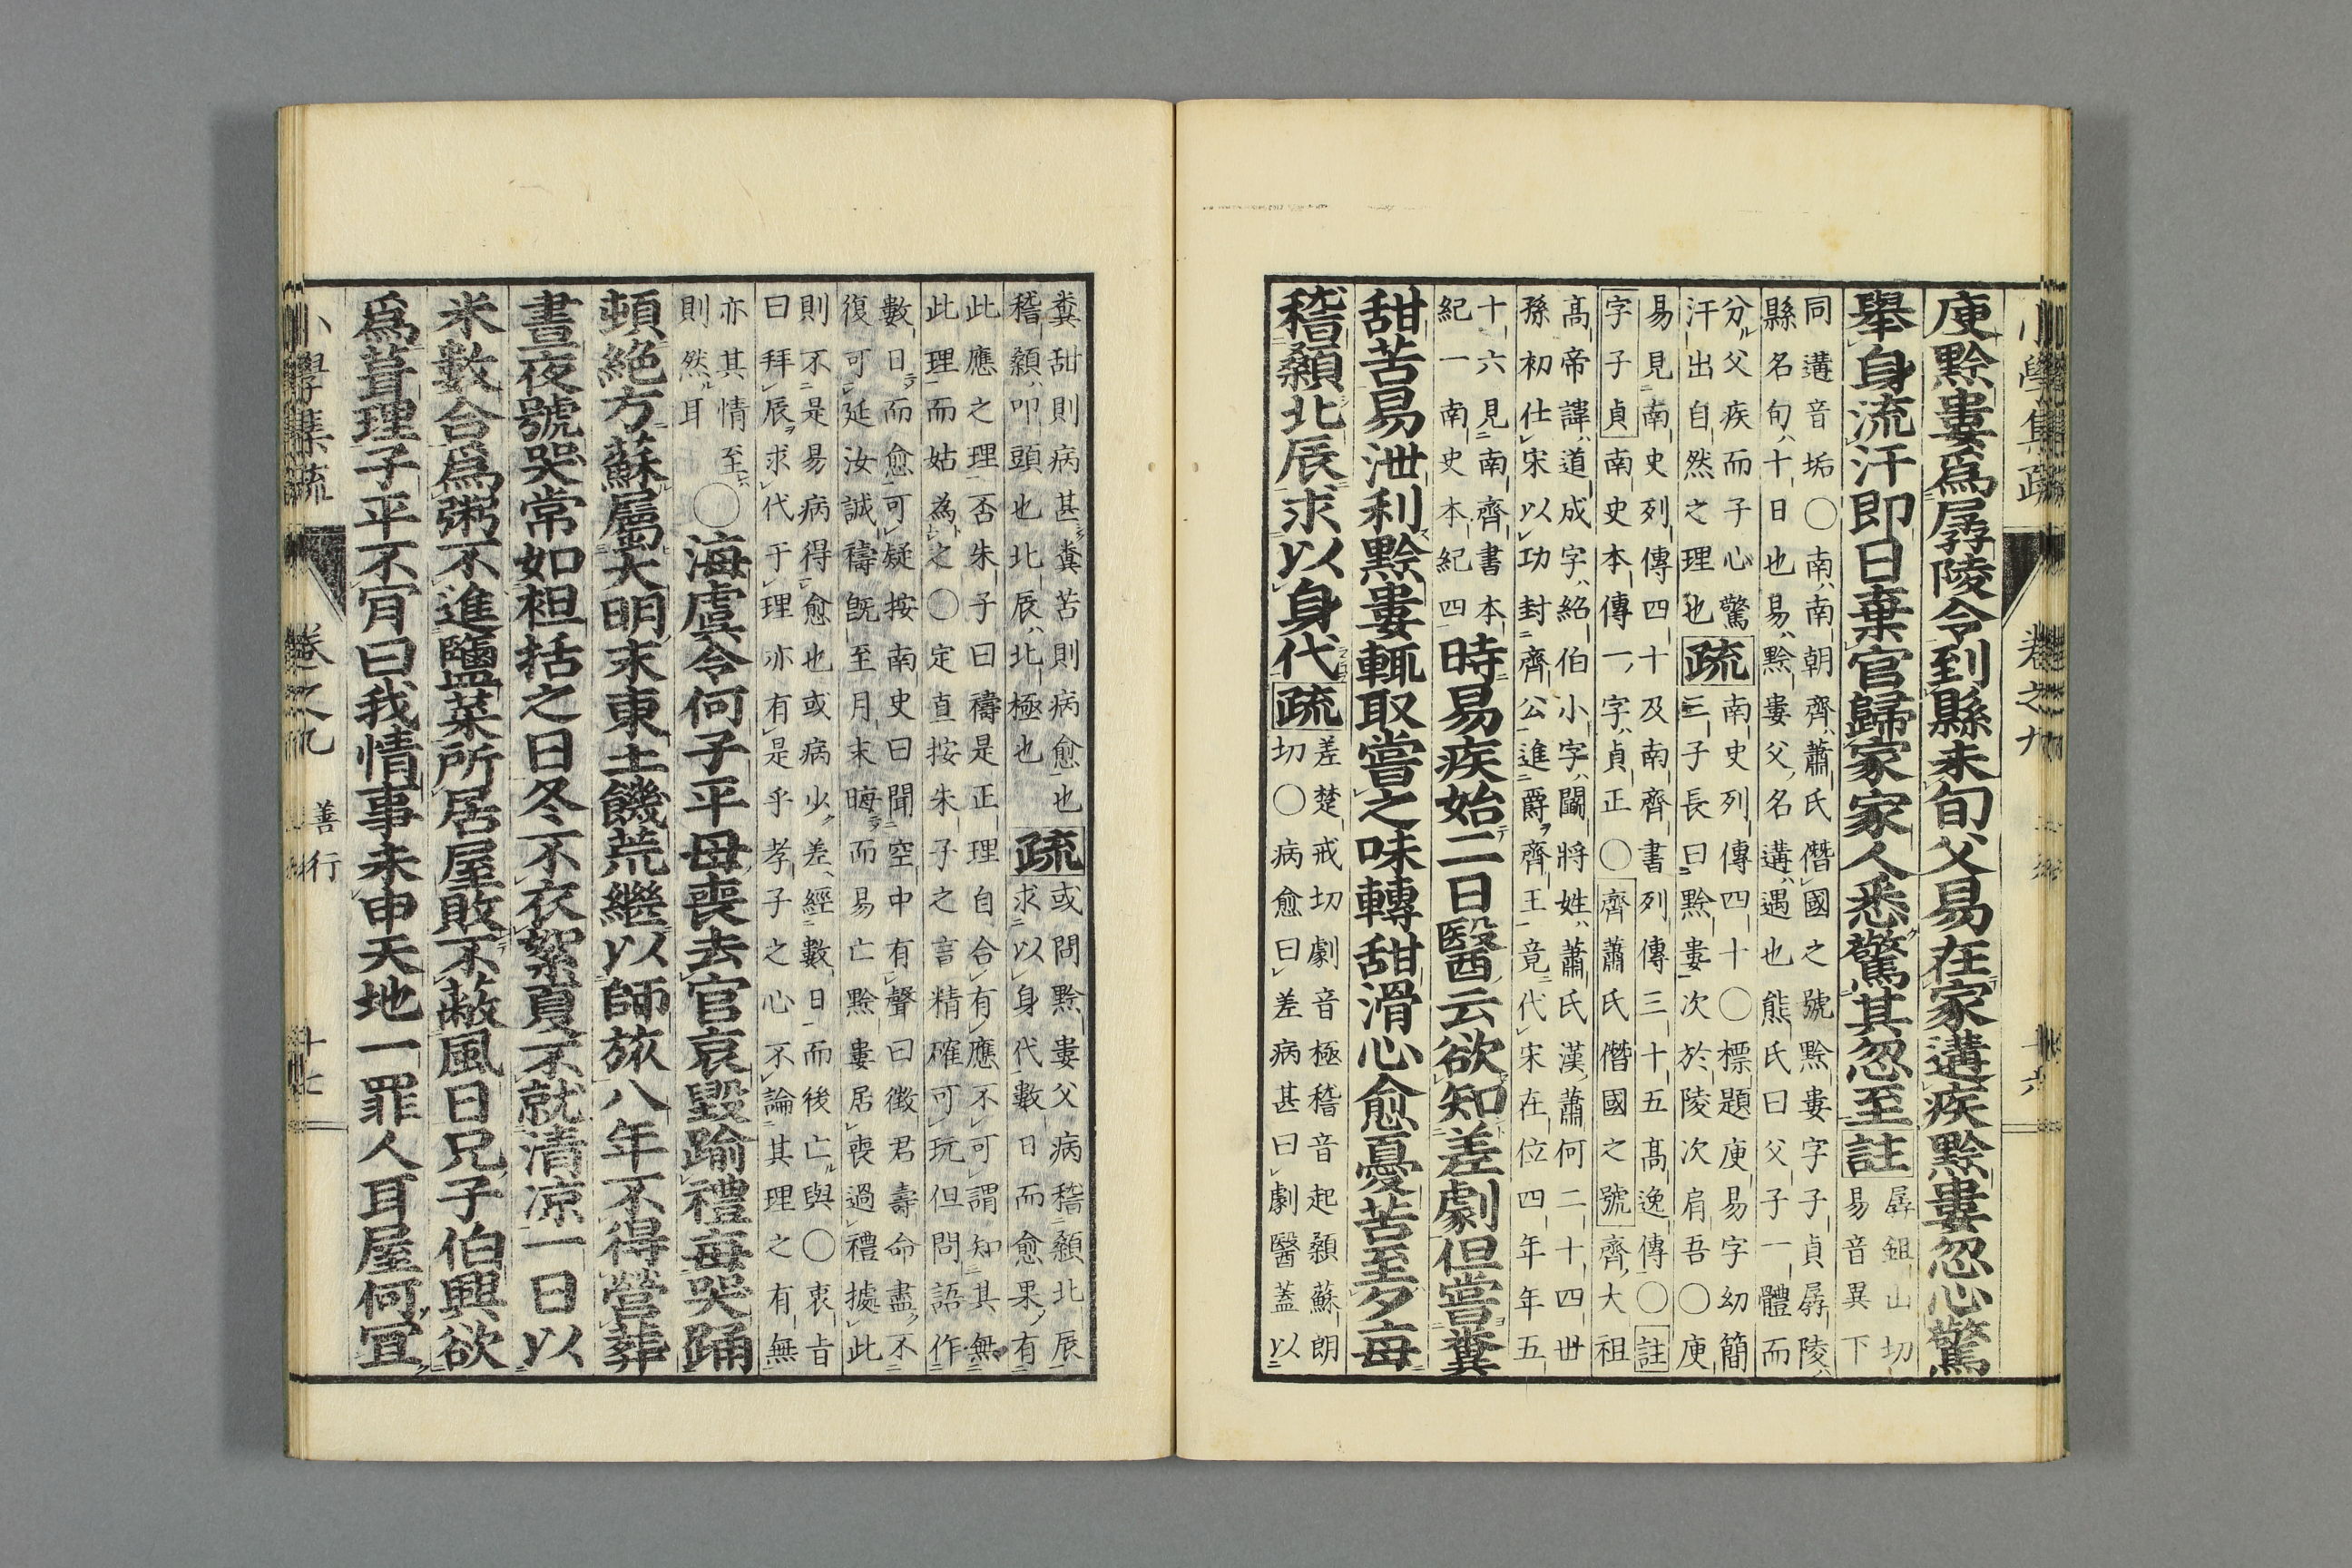 小學集疏　卷之九　十六
庾黔婁爲孱陵令到縣未旬父易在家遘疾黔婁忽心驚
舉身流汗即日棄官歸家家人悉驚其忽至註孱鉏山切
易音異下
同遘音垢○南南朝齊蕭氏僭國之號黔婁字子貞孱陵
縣名旬十日也易黔婁父名遘遇也熊氏曰父子一體而
分父疾而子心驚疏南史列傳四十○標題庾易字幼簡
汗出自然之理也三子長曰黔婁次於陵次肩吾○庾
易見南史列傳四十及南齊書列傳三十五髙逸傳○註
字子貞南史本傳一字貞正○齊蕭氏僭國之號齊大祖
髙帝諱道成字紹伯小字鬭將姓蕭氏漢蕭何二十四世
孫初仕宋以功封齊公進爵齊王竟代宋在位四年年五
十六見南齊書本
紀一南史本紀四時易疾始二日醫云欲知差劇但嘗糞
甜苦易泄利黔婁輒取嘗之味轉甜滑心愈憂苦至夕每
稽顙北辰求以身代疏差楚戒切劇音極稽音起顙蘇朗
切○病愈曰差病甚曰劇醫蓋以
糞甜則病甚糞苦則病愈也疏或問黔婁父病稽顙北辰
稽顙叩頭也北辰北極也求以身代數日而愈果有
此應之理否朱子曰禱是正理自合有應不可謂知其無
此理而姑為之○定直按朱子之言精確可玩但問語作
數日而愈可疑按南史曰聞空中有聲曰徵君壽命盡不
復可延汝誠禱旣至月末晦而易亡黔婁居喪過禮據此
則不是易病得愈也或病少差經數日而後亡與○衷旨
曰拜辰求代于理亦有是乎孝子之心不論其理之有無
亦其情至
則然耳○海虞令何子平母喪去官哀毀踰禮每哭踊
頓絕方蘇屬大明末東土饑荒繼以師旅八年不得營葬
晝夜號哭常如袒括之日冬不衣絮夏不就清凉一日以
米數合爲粥不進鹽菜所居屋敗不蔽風日兄子伯興欲
爲葺理子平不肎曰我情事未申天地一罪人耳屋何宜
小學集疏　卷之九　善行　十七